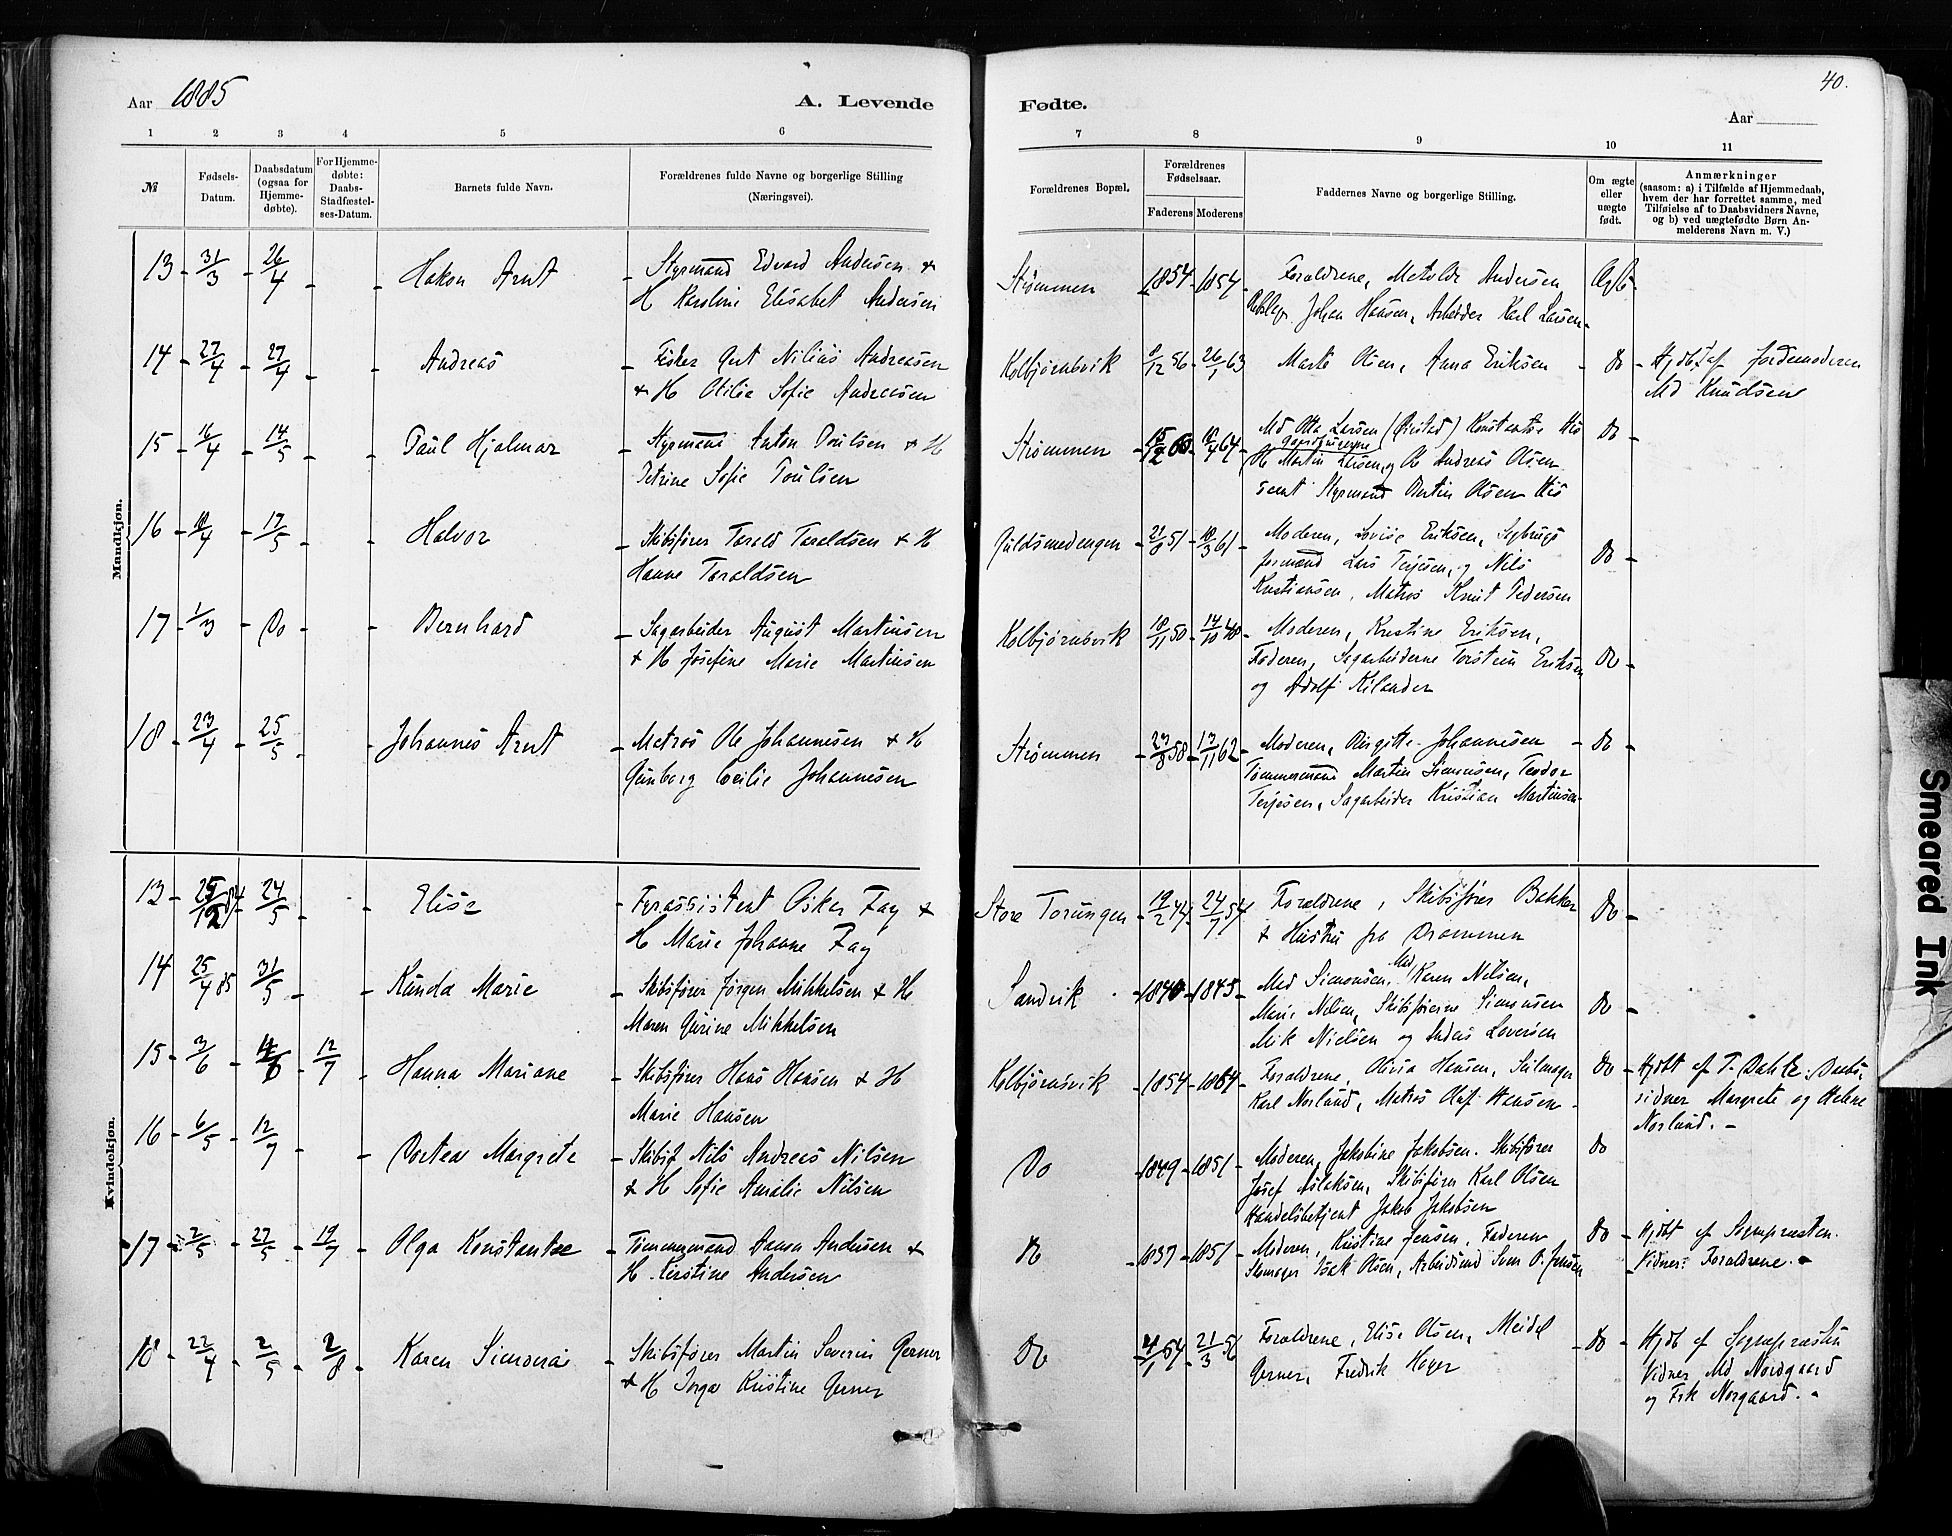 Aar 1885
A. Levende
Fødte.
40.
Aar
1 2 3 4 5 6 7 8 9 10 11
№
Fødsels-
Datum.
Daabsdatum
(ogsaa for
Hjemme-
døbte).
For Hjemme-
døbte:
Daabs-
Stadfæstel-
ses-Datum.
Barnets fulde Navn.
Forældrenes fulde Navne og borgerlige Stilling
(Næringsvei).
Forældrenes Bopæl.
Forældrenes
Fødselsaar.
Faderens Moderens
Faddernes Navne og borgerlige Stilling.
Om ægte
eller
uægte
født.
Anmærkninger
(saasom: a) i Tilfælde af Hjemmedaab,
hvem der har forrettet samme, med
Tilføielse af to Daabsvidners Navne,
og b) ved uægtefødte Børn An-
melderens Navn m. V.)
Mandkjøn.
13 - 31/3 - 26/4 - - Hakon Arnt - Styrmand Edvard Andersen &
H Karoline Elisabet Andersen
Strømmen - 1854 - 1854 - Forældrene, Metilde Andersen
Johan Hansen, Arbeider Karl Larsen - Ægte -
14 - 27/4 - 27/4 - - Andreas - Fisker Nilius Andreasen
& H Otilie Sofie Andreasen
Kolbjørnsvik 56 - 26/1 63 Marte Olsen, Anna Eriksen - Do - Hjdbt af Jordemoderen
Md Knudsen
15 - 16/4 - 14/5 - - Paul Hjalmar - Styrmand Anton Poulsen & H
Petrine Sofie Poulsen
Strømmen Md Larsen Konstantse His
H Martin Larsen, og Andreas Olsen
samt Styrmand Bertin Olsen His Do -
16 - 18/4 - 17/5 - - Halvor - Skibsfører Tarald Taraldsen & H
Hanne Taraldsen
Guldsmedengen 51 - 18/3 61 - Moderen, Lovise Eriksen, Sagbrugs
formand Lars Terjesen, og Nils
Kristiansen, Matros Knut Pedersen Do -
17 - 1/3 - Do - - Bernhard - Sagarbeider August Martinsen
& H Josefine Marie Martinsen
Kolbjørnsvik - 18/11 50 - 14/10 48 - Moderen, Kristine Eriksen,
Faderen, Sagarbeiderne Torstein Eriksen
og Adolf Kilander Do -
18 - 23/4 - 25/5 - - Johannes Arnt - Matros Ole Johannesen & H
Gunborg Cecilie Johannesen
Strømmen - 23/8 58 - 13/11 62 - Moderen, Birgitte Johannesen
Tømmermand Martin Simonsen, Teodor
Terjesen, Sagarbeider Kristian Martinsen - Do -
Kvindekjøn.
13 - 25/12 84 - 24/5 - - Elise - Fyrassistent Oskar Fay &
H Marie Johanne Fay
Store Torungen - 19/2 44 - 24/7 54 - Forældrene, Skibsfører Bakker
& Hustru fra Drammen Do -
14 25/4 85 31/5 - - Kunda Marie - Skibsfører Jørgen Mikkelsen & H
Maren Gurine Mikkelsen
Sandvik - 1840 - 1845 - Md Simonsen, Md Karen Nilsen,
Marie Nilsen, Skibsførerne Simonsen
Mik Nielsen og Anders Leversen Do -
15 - 3/6 - 4/6 - 12/7 - Hanna Mariane - Skibsfører Hans Hansen & H
Marie Hansen
Kolbjørnsvik - 1854 - 1864 - Forældrene, Olivia Hansen, Seilmager
Karl Norlund, Matros Olaf Hansen - Do - Hjdbt af T. Dahle. Daabs-
vidner Margrete og Helene
Norlund. -
16 - 6/5 - 12/7 - - Dortea Margrete - Skibsf Nils Andreas Nilsen
& H Sofie Amalie Nilsen
Do - 1849 - 1851 - Moderen, Jakobine Jakobsen. Skibsfører
Josef Aslaksen, Skibsfører Karl Olsen
Handelsbetjent Jakob Jakobsen Do
17 - 2/5 - 27/5 - 19/7 - Olga Konstantse - Tømmermand Aanon Andersen &
H Kirstine Andersen
Do - 1837 - 1851 - Moderen, Kristine Jensen, Faderen
Skomager Isak Olsen, Arbeidsmd Sven O. Jensen Do - Hjdbt af Sognepræsten.
Vidner: Forældrene. -
18 - 22/4 - 2/5 - 2/8 - Karen Simonai - Skibsfører Martin Severin Gerner
& H Inga Kristine Gerner
Do 54 - 21/3 56 Forældrene, Elise Olsen, Meidel
Gerner, Fredrik Høyer - Do - Hjdbt af Sognepræsten
Vidner Md Nordgaard
og Frk Norgaard. -
Smeared Ink